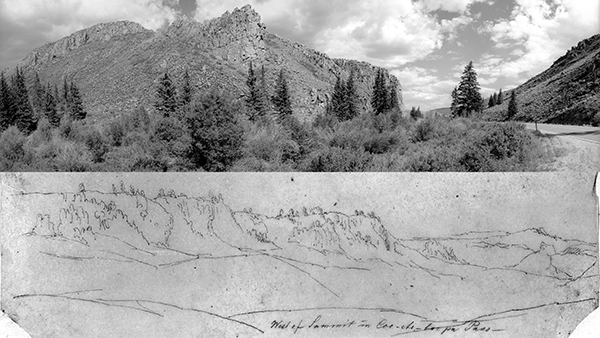 West of Summit in Coo-che-too pa Pass —